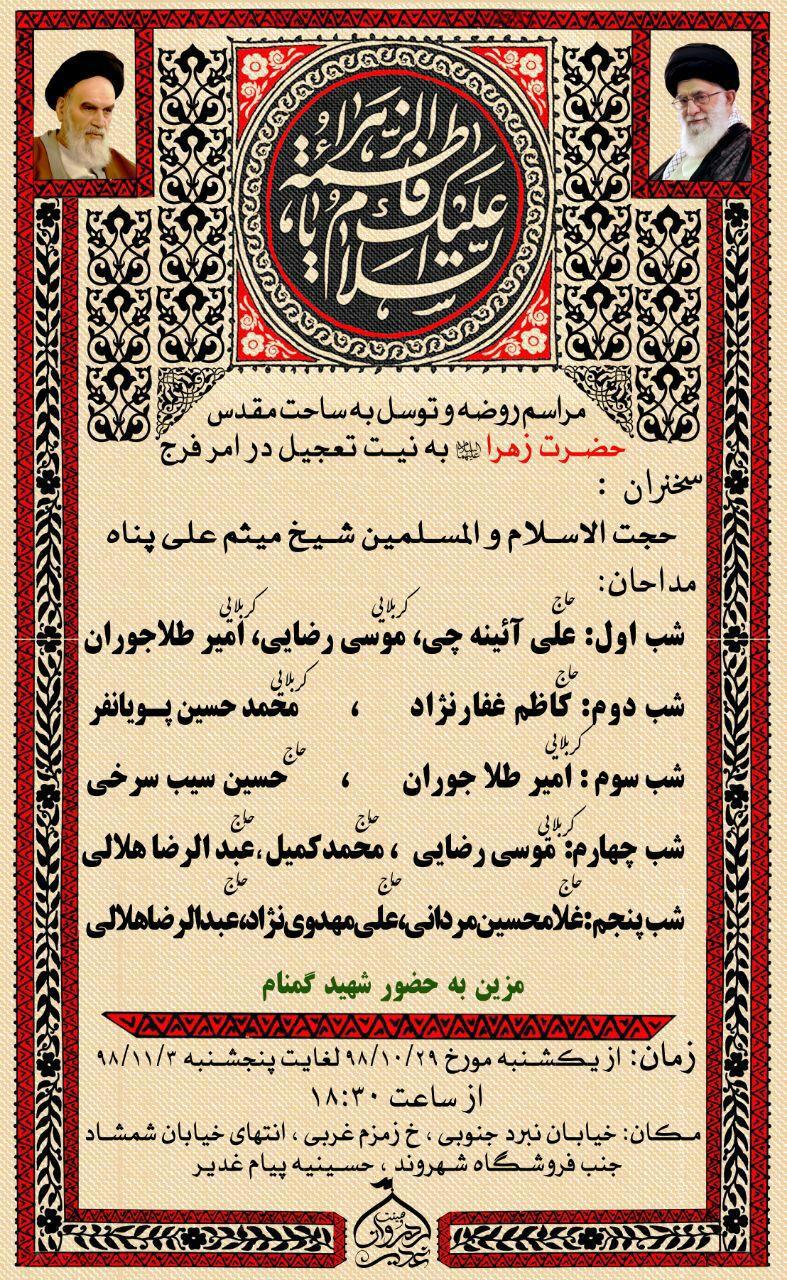 السلام علیک یا فاطمة الزهراء
مراسم روضه و توسل به ساحت مقدس
حضرت زهرا به نیت تعجیل در امر فرج
سخنران :
حجت الاسلام و المسلمین شیخ میثم علی پناه
مداحان:
حاج کربلایی کربلایی
شب اول: علی آئینه چی، موسی رضایی، امیر طلاجوران
حاج کربلایی
شب دوم: کاظم غفارنژاد ، محمد حسین پویانفر
کربلایی حاج
شب سوم : امیر طلا جوران ، حسین سیب سرخی
کربلایی حاج حاج
شب چهارم: موسی رضایی ، محمدکمیل، عبد الرضا هلالی
حاج حاج حاج
شب پنجم: غلامحسین مردانی، علی مهدوی نژاد، عبدالرضا هلالی
مزین به حضور شهید گمنام
زمان: از یکشنبه مورخ ۹۸/۱۰/۲۹ لغایت پنجشنبه ۹۸/۱۱/۳
از ساعت ۱۸:۳۰
مکان: خیابان نبرد جنوبی ، خ زمزم غربی ، انتهای خیابان شمشاد
جنب فروشگاه شهروند ، حسینیه پیام غدیر
هیئت رهروان غدیر